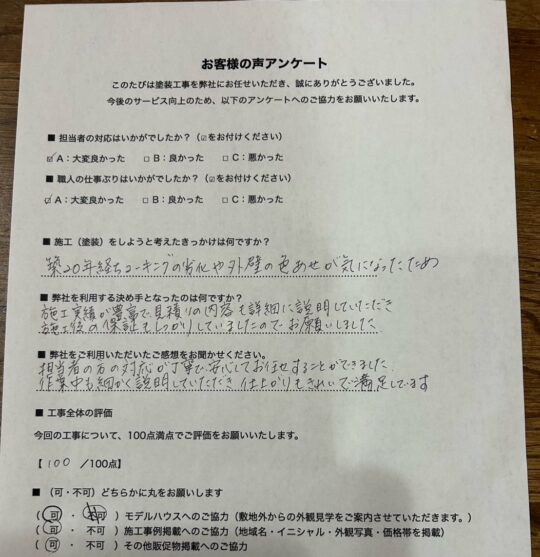 お客様の声アンケート
このたびは塗装工事を弊社にお任せいただき、誠にありがとうございました。
今後のサービス向上のため、以下のアンケートへのご協力をお願いいたします。
■ 担当者の対応はいかがでしたか?（☑をお付けください）
☑ A：大変良かった □ B：良かった □ C：悪かった
■ 職人の仕事ぶりはいかがでしたか?（☑をお付けください）
☑ A：大変良かった □ B：良かった □ C：悪かった
■ 施工（塗装）をしようと考えたきっかけは何ですか?
築20年経ちコーキングの劣化や外壁の色あせが気になったため
■ 弊社を利用する決め手となったのは何ですか?
施工実績が豊富で見積りの内容も詳細に説明していただき
施工後の保証もしっかりしていましたのでお願いしました
■ 弊社をご利用いただいたご感想をお聞かせください。
担当者の方の対応が丁寧で安心してお任せすることができました
作業中も細かく説明していただき仕上がりもきれいで満足しています
■ 工事全体の評価
今回の工事について、100点満点でご評価をお願いいたします。
【 100 /100点】
■（可・不可）どちらかに丸をお願いします
( 可 ・ 不可 ) モデルハウスへのご協力（敷地外からの外観見学をご案内させていただきます。）
( 可 ・ 不可 ) 施工事例掲載へのご協力（地域名・イニシャル・外観写真・価格帯を掲載）
( 可 ・ 不可 ) その他販促物掲載へのご協力